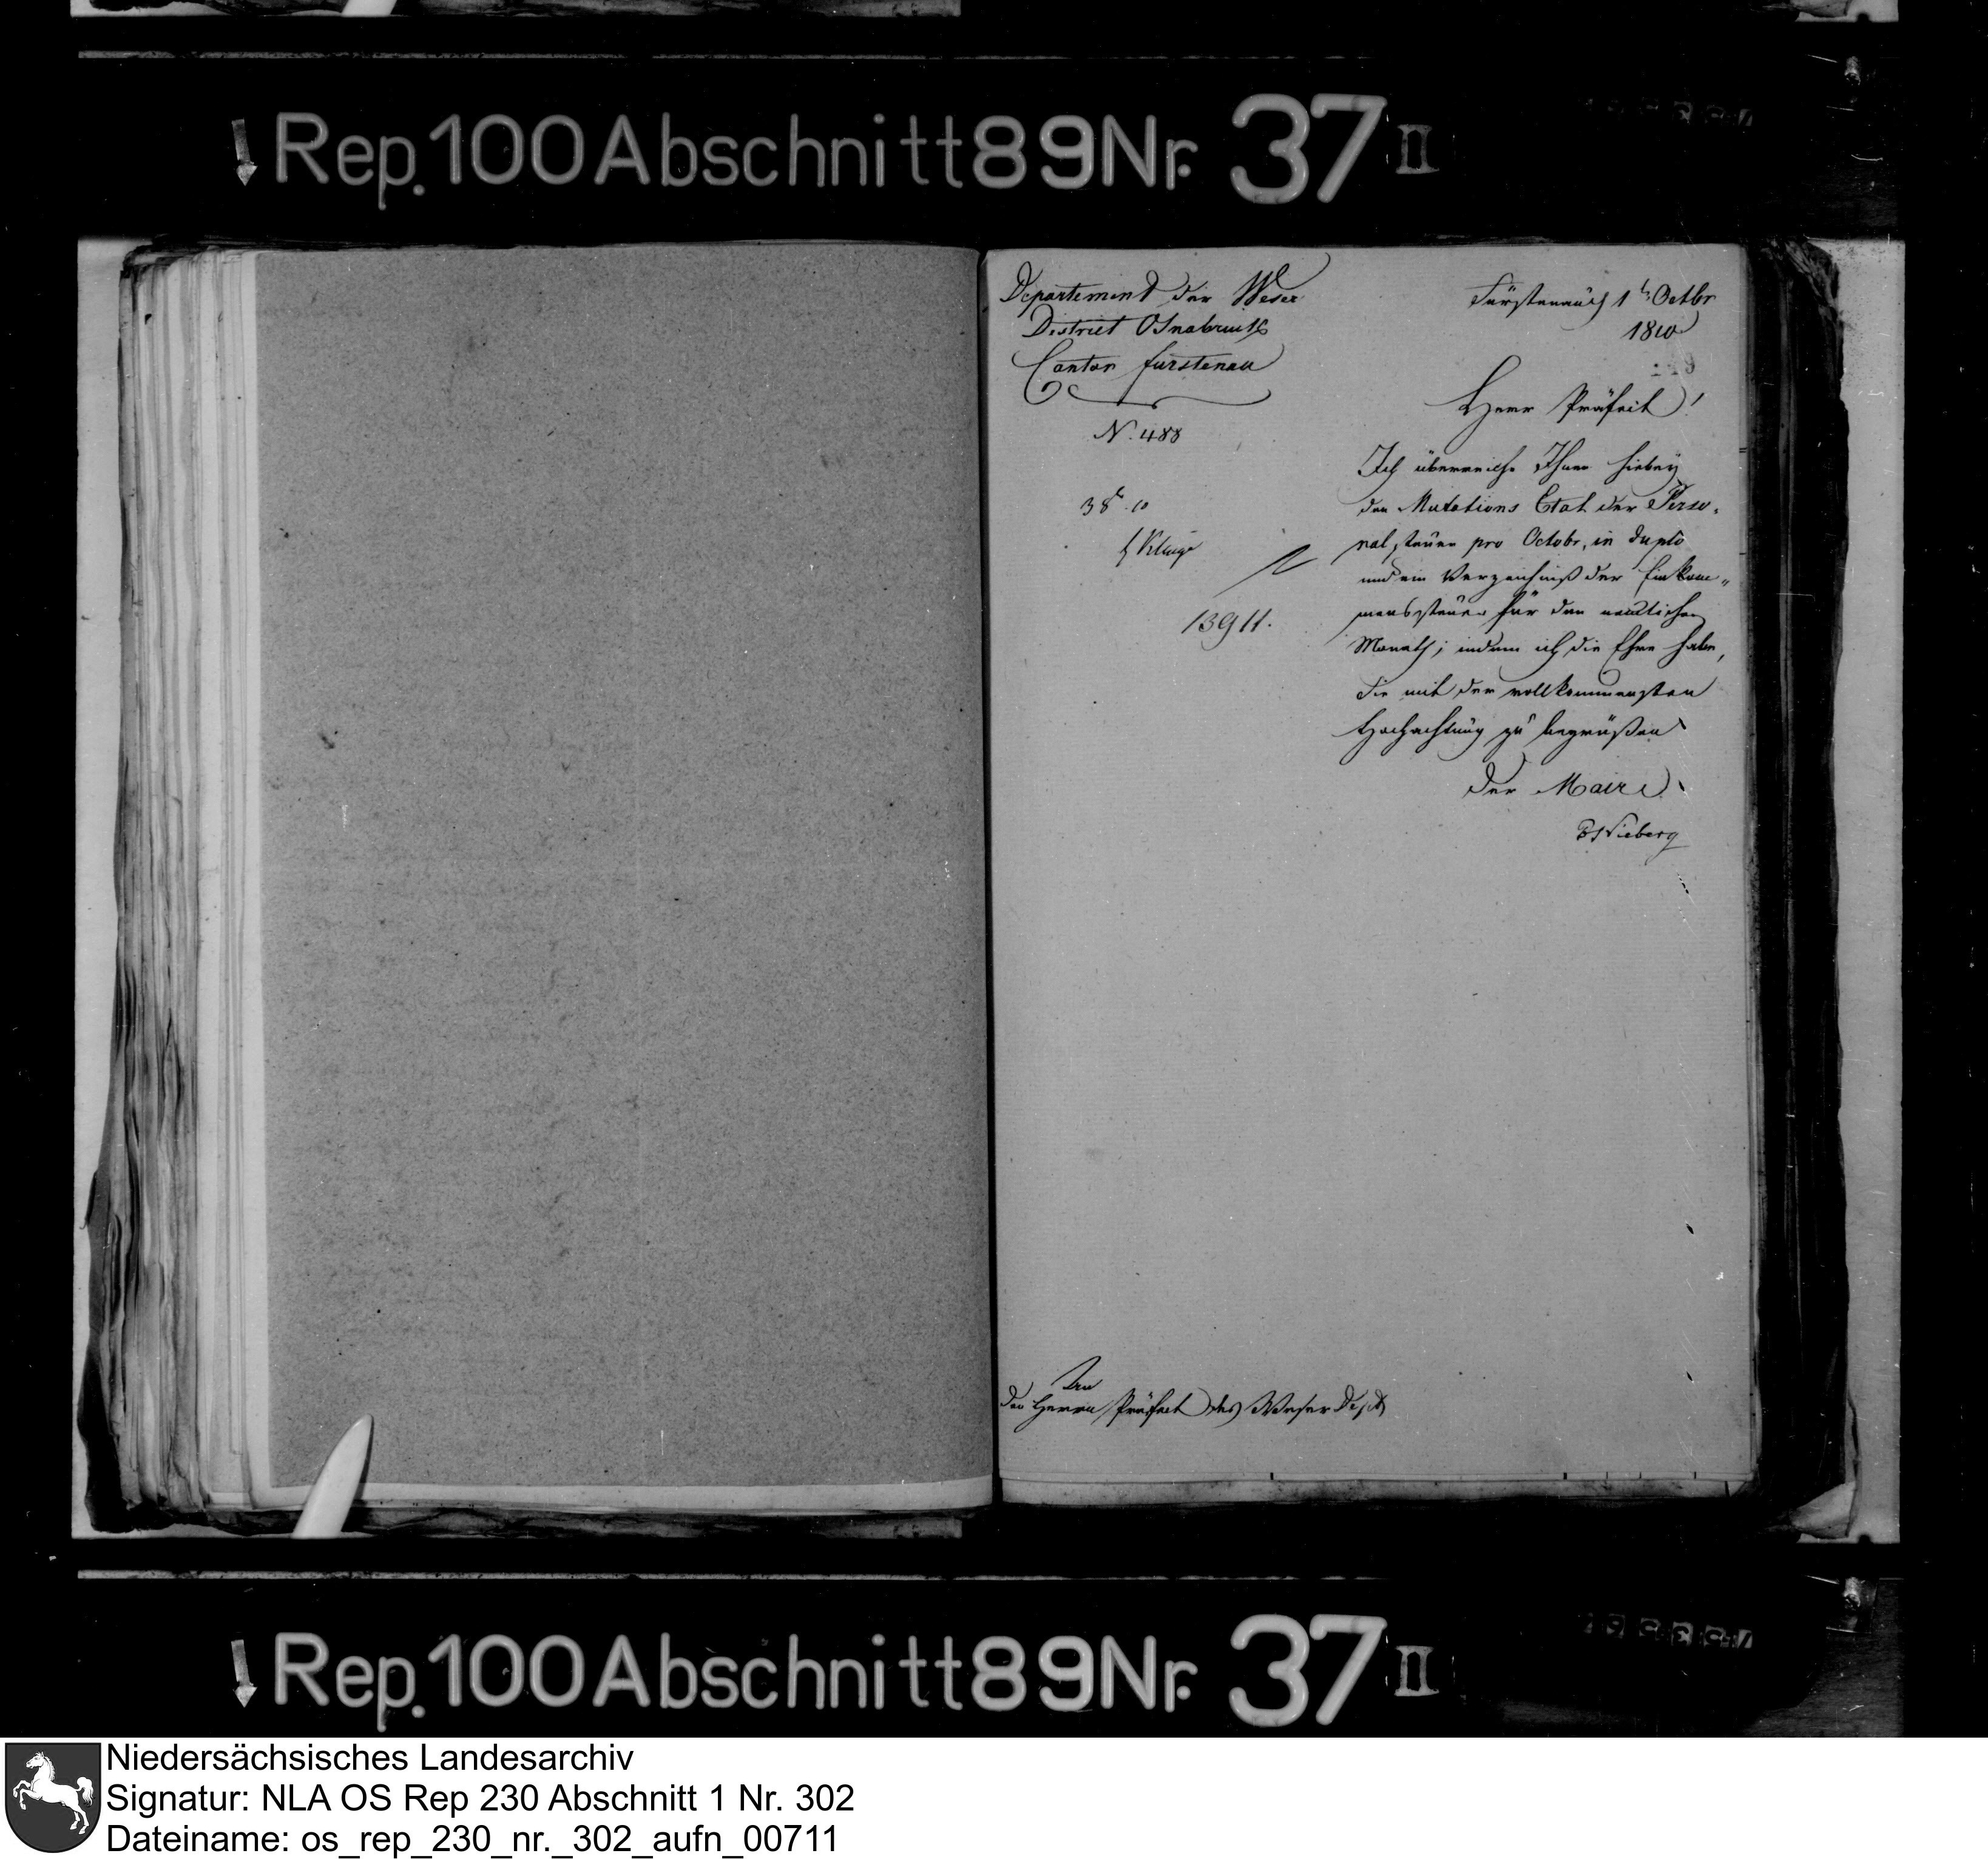 Rep. 100 Abschnitt 89 Nr. 37 II
Departement der Weser
District Osnabruck
Canton furstenau
N. 488
Fürstenau 1 t. Octbr
1810
Herr Präfect!
Ich überreiche Ihnen hiebey
den Mutations Etat der Perso,
nal steuer pro Octobr, in duplo
und ein Verzeichniß der Einkom„
mensteuer für den nemlichen
Monath; indem ich die Ehre habe,
Sie mit der vollkommensten
Hochachtung zu begrüßen
Der Maire
Nieberg
13911.
An
den Herrn Präfect des Weser Dept
Rep. 100 Abschnitt 89 Nr. 37 II
Niedersächsisches Landesarchiv
Signatur: NLA OS Rep 230 Abschnitt 1 Nr. 302
Dateiname: os_rep_230_nr._302_aufn_00711